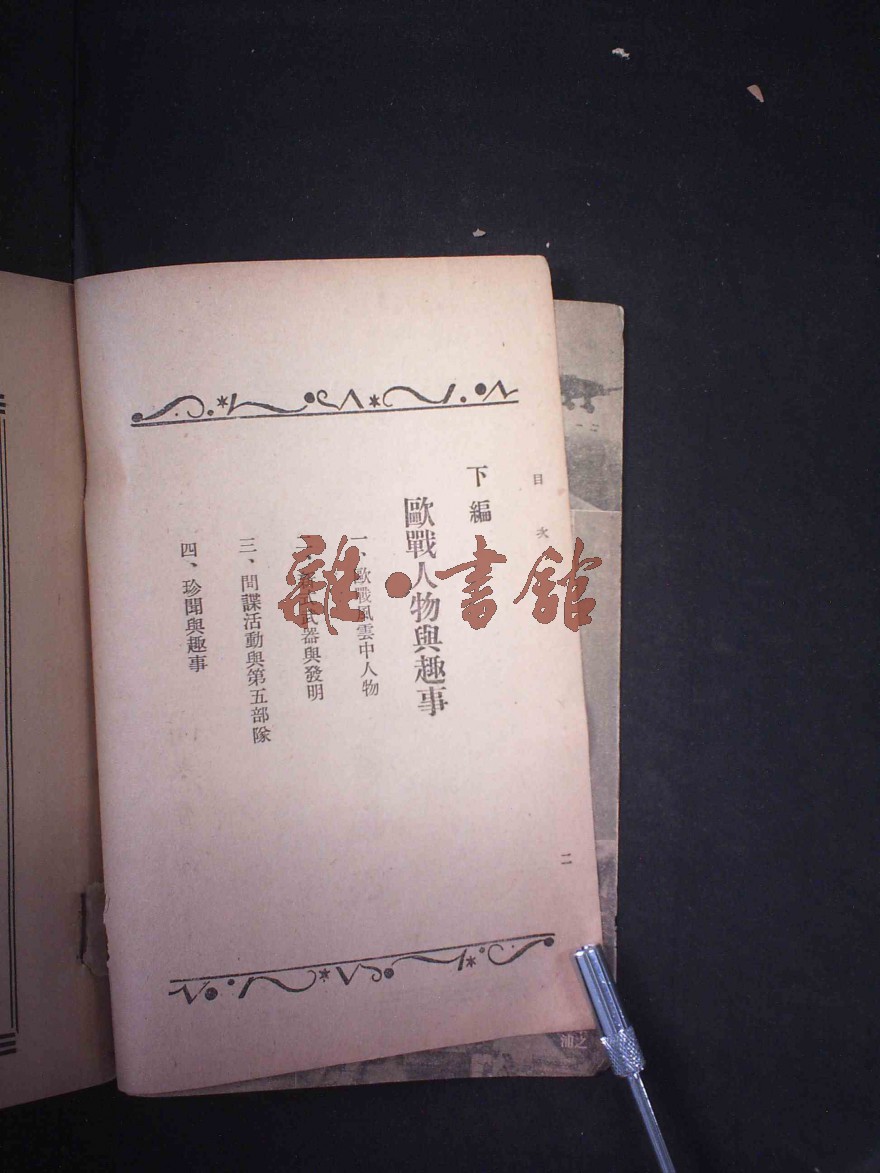 目次
二
下編
歐戰人物與趣事
一、歐戰風雲中人物
二、新式武器與發明
三、間諜活動與第五部隊
四、珍聞與趣事
雜·書館
之浦